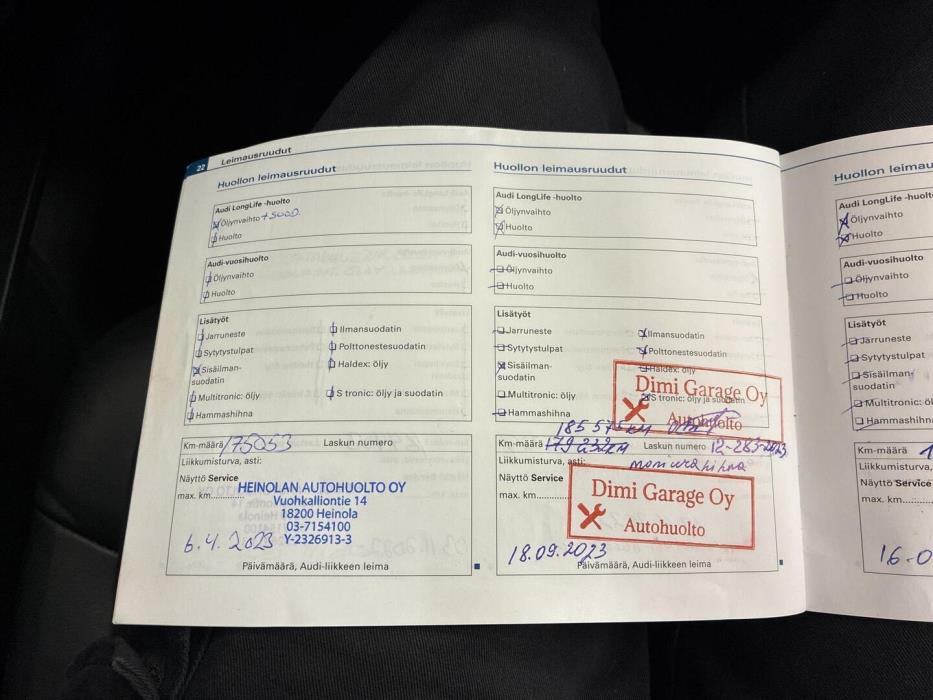 22 Leimausruudut
Huollon leimausruudut
Audi LongLife -huolto
Öljynvaihto + SUOD.
Huolto
Audi-vuosihuolto
Öljynvaihto
Huolto
Lisätyöt
Jarruneste
Sytytystulpat
Sisäilman-
suodatin
Multitronic: öljy
Hammashihna
Ilmansuodatin
Polttonestesuodatin
Haldex: öljy
S tronic: öljy ja suodatin
Km-määrä 175053 Laskun numero
Liikkumisturva, asti:
Näyttö Service
max. km
HEINOLAN AUTOHUOLTO OY
Vuohkalliontie 14
18200 Heinola
03-7154100
Y-2326913-3
6.4.2023
Päivämäärä, Audi-liikkeen leima
Huollon leimausruudut
Audi LongLife -huolto
Öljynvaihto
Huolto
Audi-vuosihuolto
Öljynvaihto
Huolto
Lisätyöt
Jarruneste
Sytytystulpat
Sisäilman-
suodatin
Multitronic: öljy
Hammashihna
Ilmansuodatin
Polttonestesuodatin
Haldex: öljy
S tronic: öljy ja suodatin
Dimi Garage Oy
Autohuolto
185 575 km
Km-määrä 179 232 km Laskun numero 12-283-2023
Liikkumisturva, asti: moniurahihna
Näyttö Service
max. km
Dimi Garage Oy
Autohuolto
18.09.2023
Päivämäärä, Audi-liikkeen leima
Huollon leimau
Audi LongLife -huolt
Öljynvaihto
Huolto
Audi-vuosihuolto
Öljynvaihto
Huolto
Lisätyöt
Jarruneste
Sytytystulpat
Sisäilman-
suodatin
Multitronic: öl
Hammashihna
Km-määrä 1
Liikkumisturva,
Näyttö Service
max. km
16-0